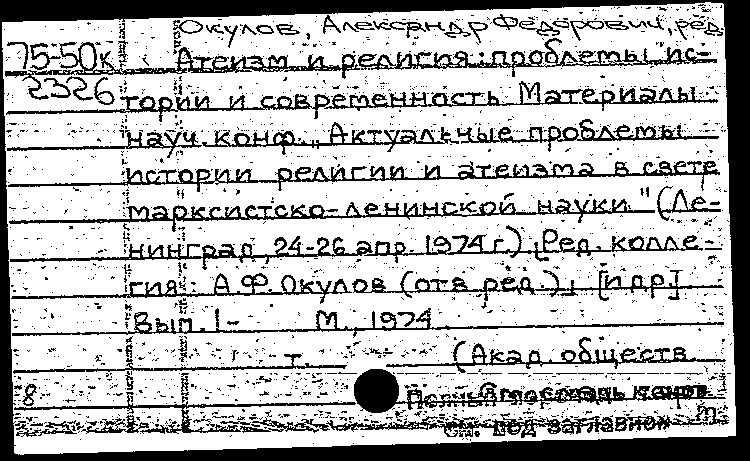 Окулов, Александр Федорович, ред.
75-50к Атеизм и религия: проблемы ис-
2326 тории и современность Материалы
науч. конф. „Актуальные проблемы
истории религии и атеизма в свете
марксистско-ленинской науки" (Ле-
нинград, 24-26 апр. 1974 г.) [Ред. колле-
гия: А.Ф. Окулов (отв. ред.), [и др.]
Вып. 1- М., 1974
т. (Акад. обществ.
8
см. под заглавием m